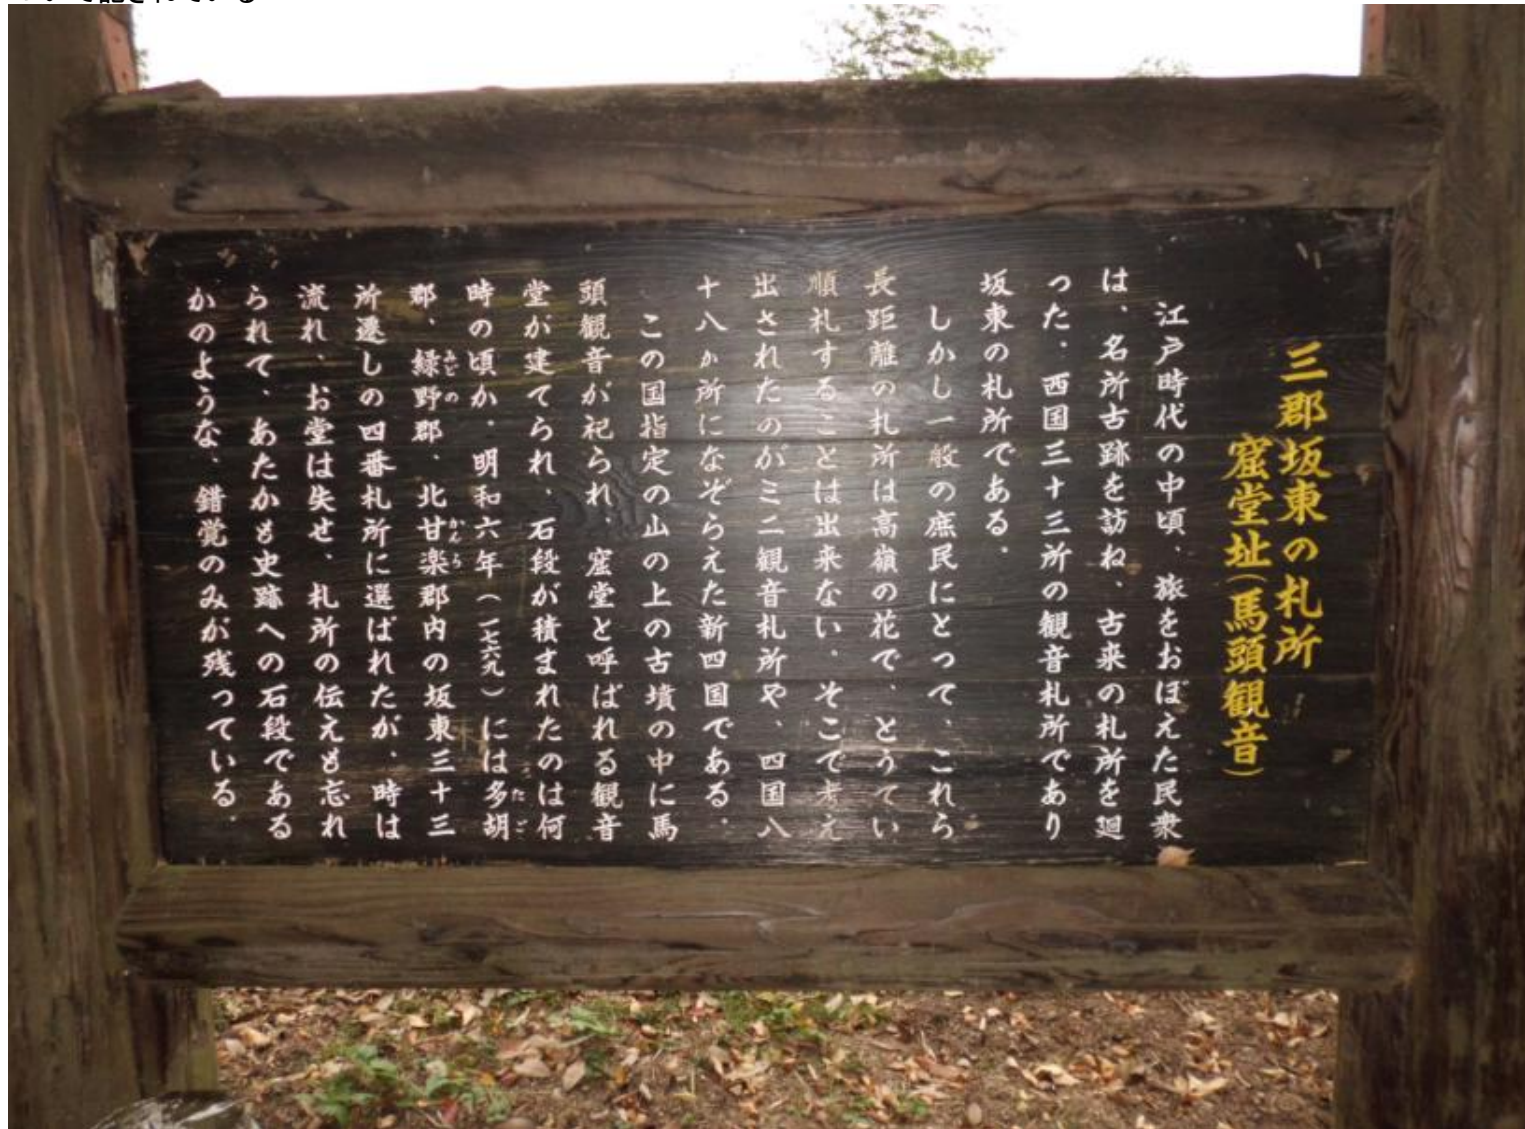 三郡坂東の札所
窟堂址(馬頭観音)
江戸時代の中頃、旅をおぼえた民衆
は、名所古跡を訪ね、古来の札所を廻
った。西国三十三所の観音札所であり
坂東の札所である。
しかし一般の庶民にとって、これら
長距離の札所は高嶺の花で、とうてい
順札することは出来ない。そこで考え
出されたのがミニ観音札所や、四国八
十八ヵ所になぞらえた新四国である。
この国指定の山の上の古墳の中に馬
頭観音が祀られ、窟堂と呼ばれる観音
堂が建てられ、石段が積まれたのは何
時の頃か。明和六年(一七六九)には多胡
郡、緑野郡、北甘楽郡内の坂東三十三
所遷しの四番札所に選ばれたが、時は
流れ、お堂は失せ、札所の伝えも忘れ
られて、あたかも史跡への石段である
かのような、錯覚のみが残っている。